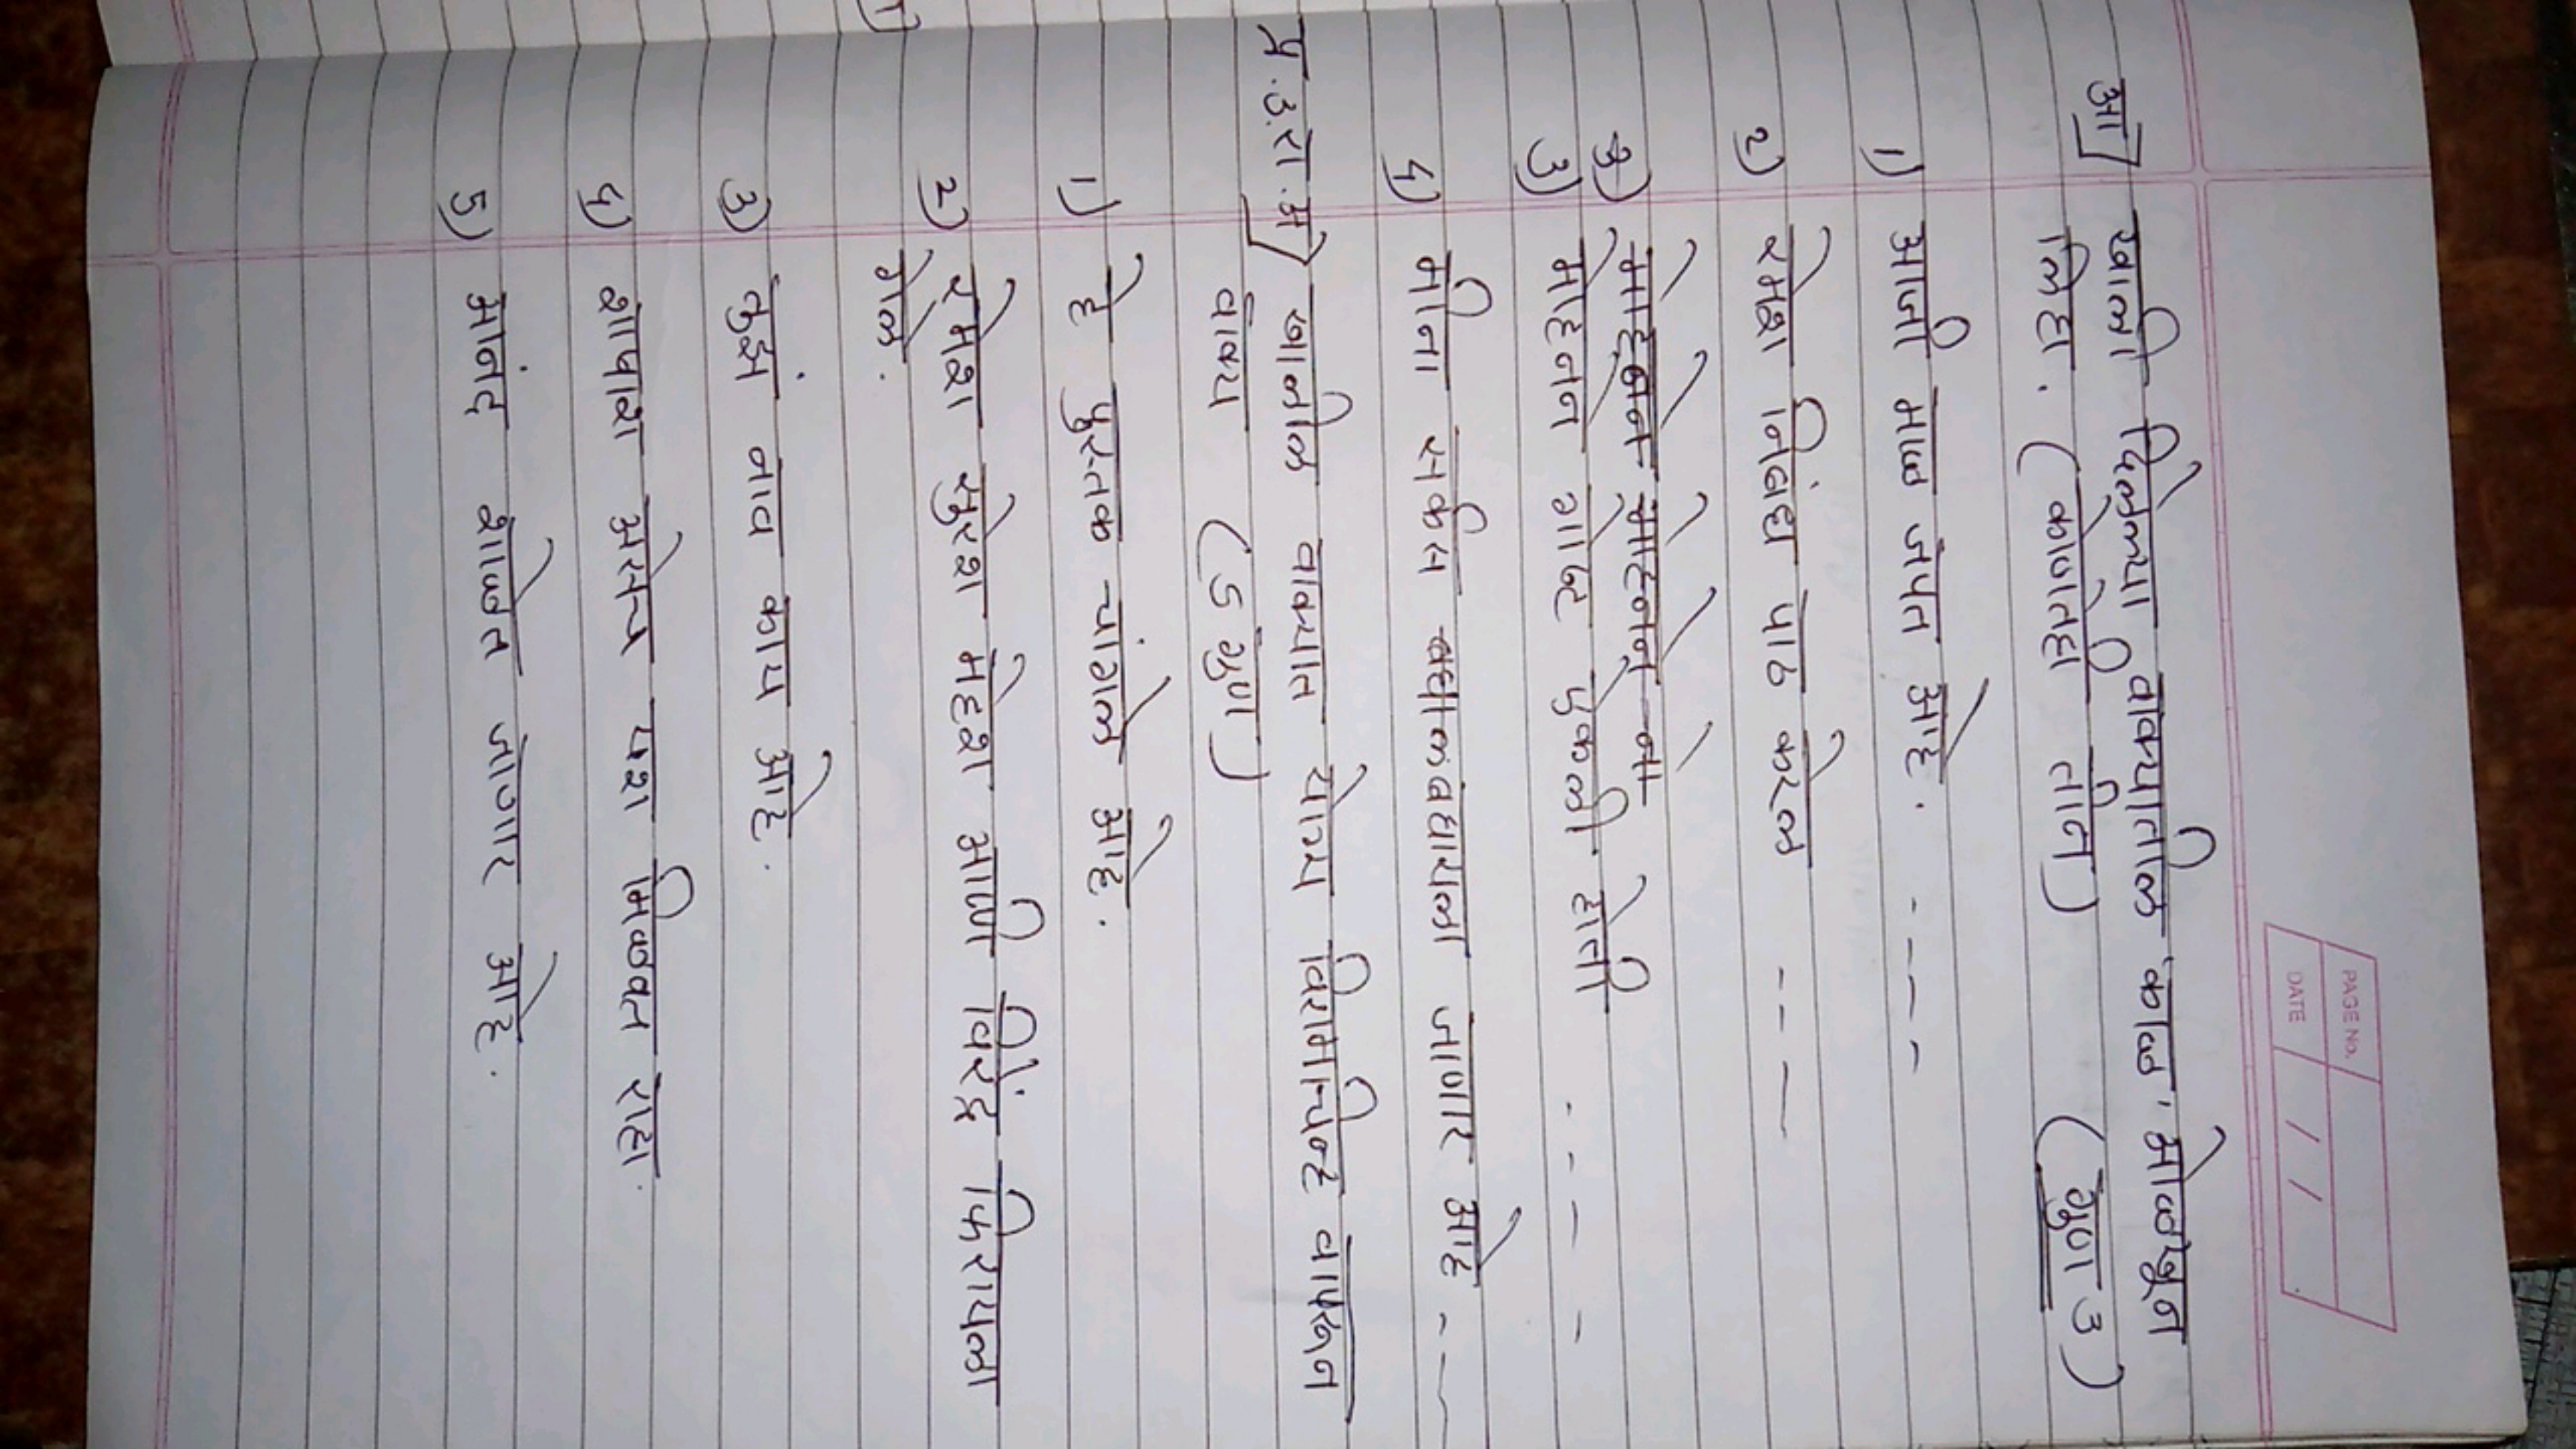 PAGE No.
DATE / /
आ] खाली दिलेल्या वाक्यातील 'काळ' ओळखून
लिहा. (कोणतेही तीन) (गुण 3)
1) आजी माळ जपत आहे. - - - -
२) रमेश निबंध पाठ करेल - - - -
3) मोहनने
3) मोहनने गोष्ट एकली होती - - - - -
4) मीना सर्कस बघायला जाणार आहे - - -
प्र.3.रा.अ] खालील वाक्यात योग्य विरामचिन्ह वापरून
वाक्य (5 गुण)
1) हे पुस्तक चांगले आहे.
2) रमेश सुरेश महेश आणि विरेंद्र फिरायला
गेले.
3) तुझं नाव काय आहे.
4) शापाश असेच यश मिळवत रहा.
5) आनंद शाळेत जाणार आहे.